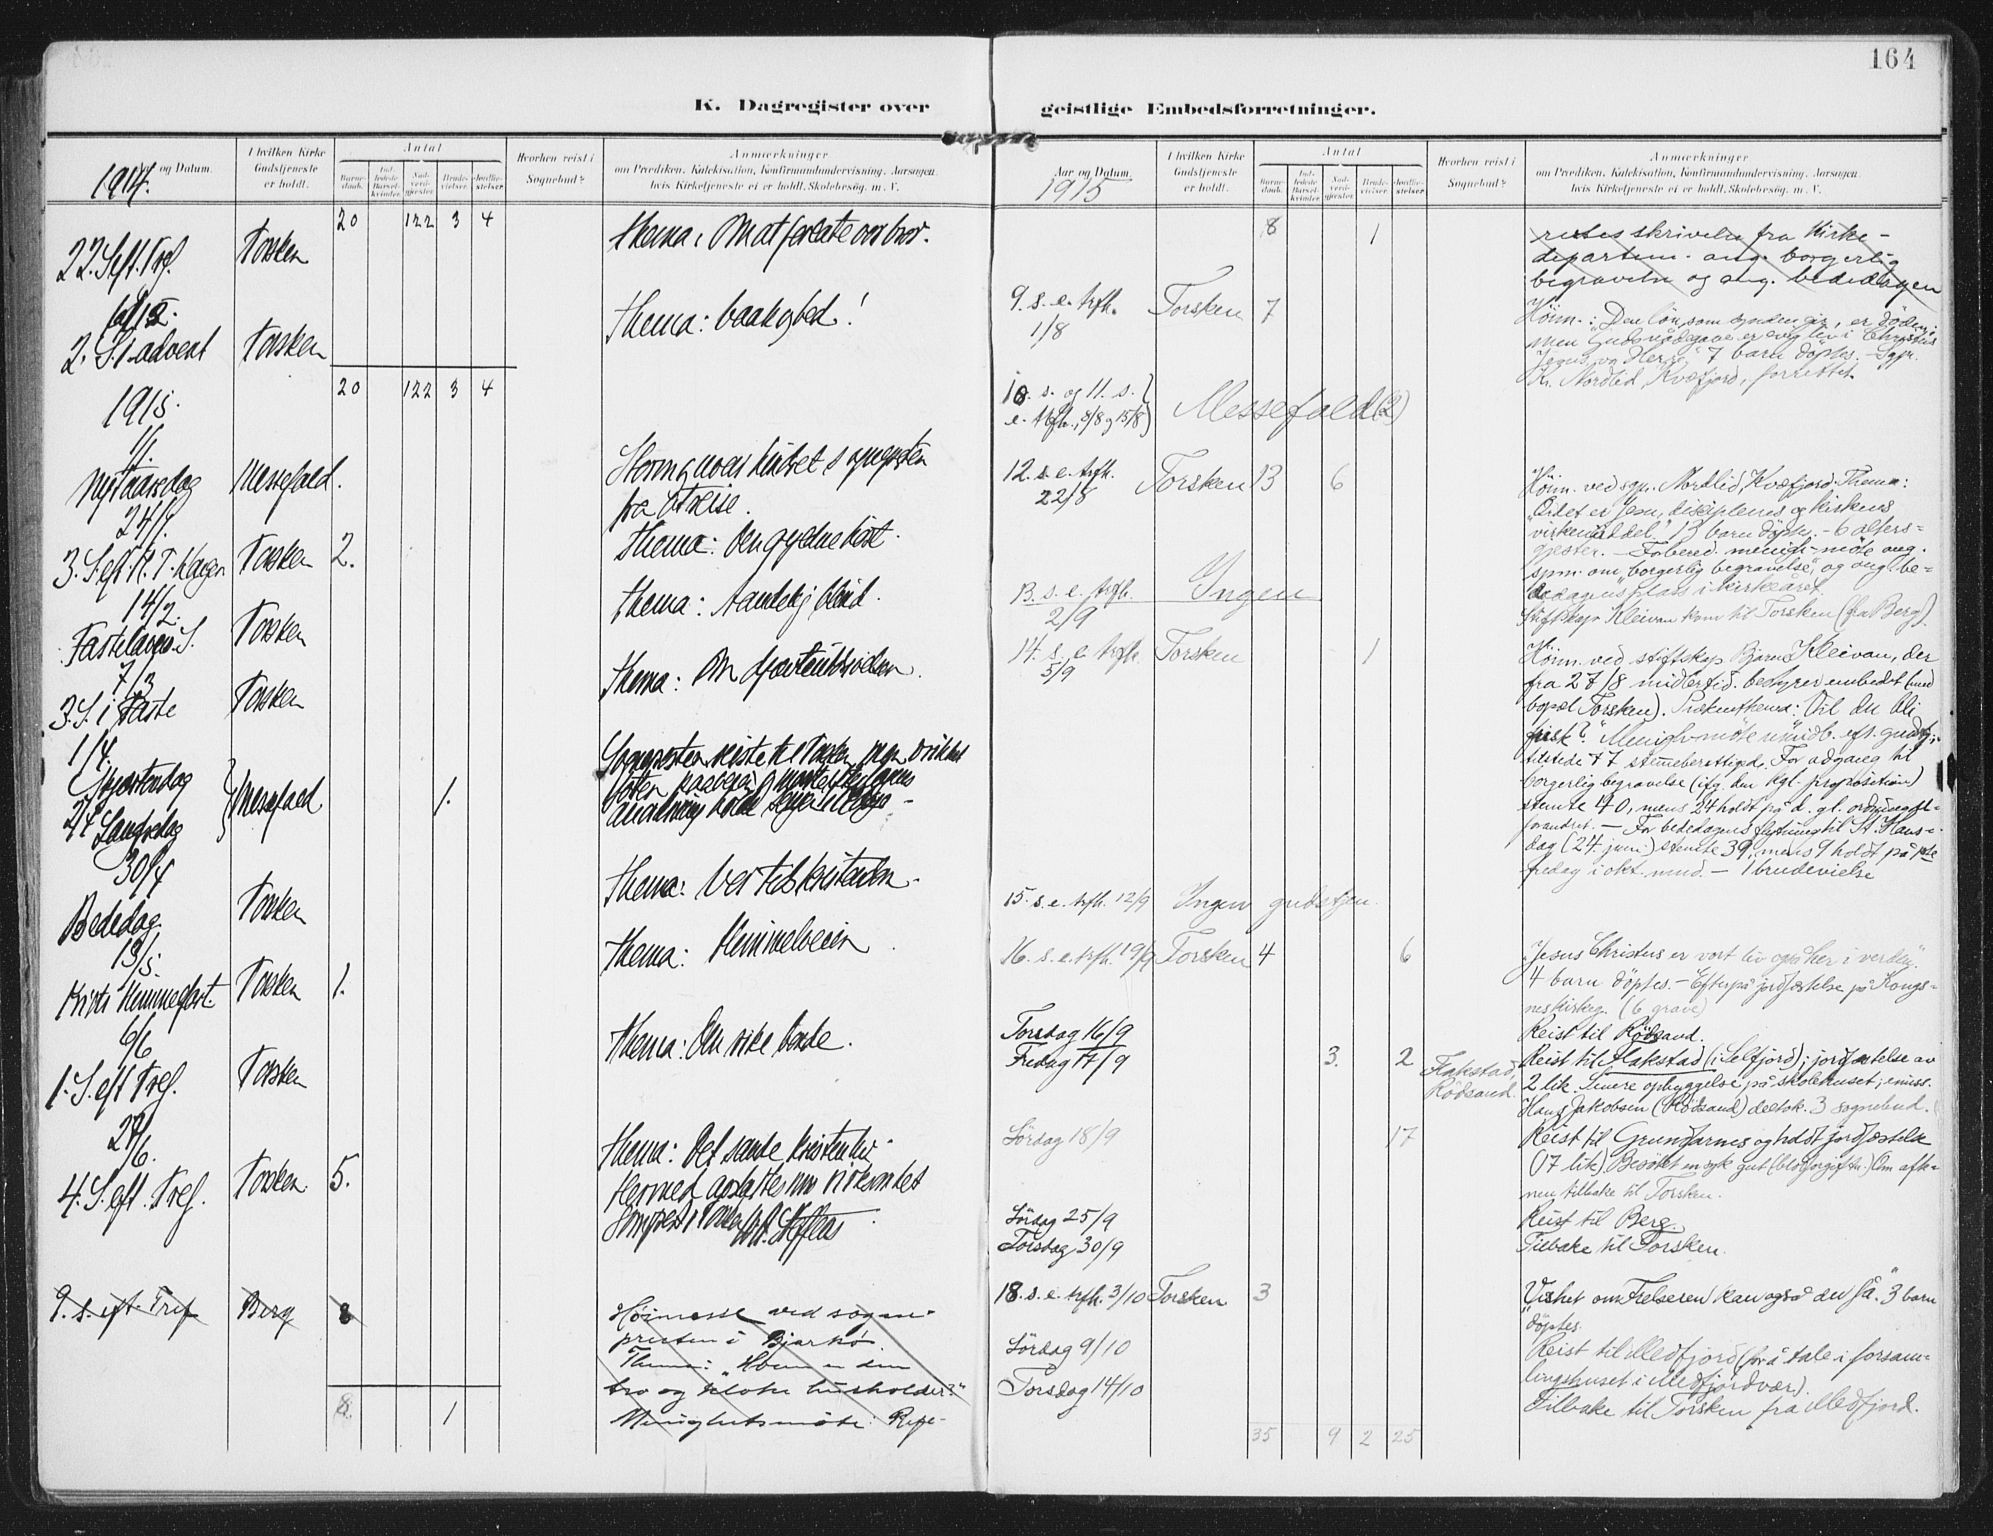 164
K. Dagregister over
geistlige Embedsforretninger.
1914. og Datum.
I hvilken Kirke Gudstjeneste er holdt.
Antal
Barne-daab.
Ind-ledede Barsel-kvinder.
Nad-verd-gjester.
Brude-vielser.
Jordfæ-stelser.
Hvorhen reist i Sognebud?
Anmærkninger
om Prædiken, Katekisation, Konfirmandundervisning, Aarsagen,
hvis Kirketjeneste ei er holdt, Skolebesøg, m. V.
20 122 3 4
22. S. eft. Tref. Torsken Thema: Om at forlate vor bror.
2. S. i advent Torsken Thema: vaak og bed!
20 122 3 4
1915.
1/1.
Nytaarsdag Messefald.
fra
24/1.
3. S. eft. H. T. Konger Torsken 2. Thema: Den gyldne
14/2.
Fastelavns S. Torsken Thema: Aandelig blind.
7/3
3. S. i Faste Torsken Thema: Om
1/4.
Skjærtorsdag
2/4 Langfredag Messefald 1.
30/4
Bededag Torsken Thema:
13/5.
Kristi Himmelfart. Torsken 1. Thema: Himmelveien
6/6
1. S. eft Tref. Torsken Thema: Den rike
27/6.
4. S. eft. Tref. Torsken 5. Thema: Det sande kristenliv.
Hermed
9. s. eft. Tref Berg 8 Høimesse ved sogne-
presten i Bjarkø.
Thema: "Hvem er den
tro og kloke husholder?"
Menighetsmøte: Refe-
8. 1
Aar og Datum.
1915
I hvilken Kirke Gudstjeneste er holdt.
Antal
Barne-daab.
Ind-ledede Barsel-kvinder.
Nad-verd-gjester.
Brude-vielser.
Jordfæ-stelser.
Hvorhen reist i Sognebud?
Anmærkninger
om Prædiken, Katekisation, Konfirmandundervisning, Aarsagen,
hvis Kirketjeneste ei er holdt, Skolebesøg, m. V.
8 1 skrivelse fra Kirke-
departem. ang. borgerlig
begravelse og ang. bededagen
9. s. e. trfh. 1/8 Torsken 7 Höim.: Den lön, som synden gir, er döden;
men Guds nådegave er evig liv i Christus
Jesus, vor Herre." 7 barn döptes. - Sgpr.
Kr. Nordlid, Kvæfjord, forrettet.
10. s. og 11. s.
e. trfh., 8/8 og 15/8) Messefald (2)
12. s. e. trfh. 22/8 Torsken 13 6 Höim. ved sgpr. Nordlid, Kvæfjord. Thema:
"Ordet er Jesu, disciplenes og kirkens
virkemiddel." 13 barn döptes. - 6 alters-
gjester. - Forbered. menigh-möte ang.
spm. om "borgerlig begravelse", og ang. be-
dedagens plass i kirkeåret.
Stiftskap. Kleivan kom til Torsken (fra Berg).
13. s. e. trfh. 2/9 Ingen
14. s. e. trfh. 5/9 Torsken 1 Höim. ved stiftskap. Bjarne Kleivan, der
fra 27/8 midlertid. bestyrer embedet (med
bopæl Torsken). Prækenthema: "Vil du bli
frisk?" Menighmöte umidb. eft. gudstj.;
tilstede 77 stemeberettigede. For adgang til
borgerlig begravelse (ifg. den kgl. proposition)
stemte 40, mens 24 holdt på d. gl. ordning
forandret. - For bededagens flytning til St. Hans-
dag (24. juni) stemte 39, mens 9 holdt på 1ste
fredag i okt. mnd. - 1 brudevielse
15. s. e. trfh. 12/9 Ingen gudstjen.
16. s. e. trfh. 19/9 Torsken 4 6 "Jesus Christus er vort liv også her i verden."
4 barn döptes. - Efterpå jordfæstelse på Kongs-
neskirkeg. (6 grave)
Torsdag 16/9 Reist til Rödsand.
Fredag 17/9 3. 2 Flakstad, Rödsand. Reist til Flakstad (i Selfjord); jordfæstelse av
2 lik. Senere opbyggelse på skolehuset; emiss.
Hans Jakobsen (Rödsand) deltok. 3 sognebud.
Lördag 18/9 17 Reist til Grundfarnes og holdt jordfæstelse
(17 lik) Besökt en syk gut (blodforgiftn.) Om afte-
nen tilbake til Torsken.
Lördag 25/9 Reist til Berg.
Torsdag 30/9 Tilbake til Torsken.
18. s. e. trfh. 3/10 Torsken 3 "Vishet om Frelseren kan også du få." 3 barn
döptes.
Lördag 9/10 Reist til Medfjord (for å tale i forsam-
lingshuset i Medfjordvær).
Torsdag 14/10 Tilbake til Torsken fra Medfjord.
35 9 2 25